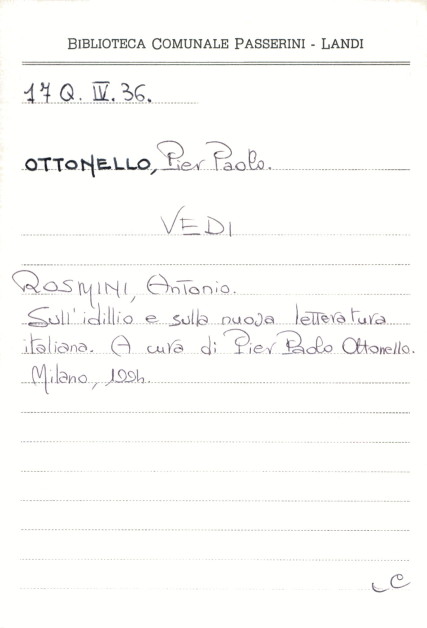 BIBLIOTECA COMUNALE PASSERINI - LANDI
17 Q. IV. 36.
OTTONELLO, Pier Paolo.
VEDI
ROSMINI, Antonio.
Sull'idillio e sulla nuova letteratura
italiana. A cura di Pier Paolo Ottonello.
Milano, 1994.